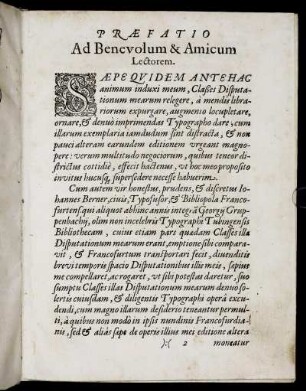 PRÆFATIO
Ad Benevolum & Amicum
Lectorem.
SÆPE QVIDEM ANTEHAC
animum induxi meum, Classes Disputa-
tionum mearum relegere, à mendis libra-
riorum expurgare, augmento locupletare,
ornare, & denuò imprimendas Typographo dare, cum
illarum exemplaria iamdudum sint distracta, & non
pauci alteram earundem editionem urgeant magno-
pere: verùm multitudo negociorum, quibus teneor di-
strictus cottidiè, effecit hactenus, ut hoc meo proposito
invitus hucusq; supersedere necesse habuerim.
Cum autem vir honestus, prudens, & discretus Io-
hannes Berner, civis, Typosusor, & Bibliopola Franco-
furtensis, qui aliquot abhinc annis integrā Georgij Grup-
penbachij, olim non incelebris Typographi Tubingensis
Bibliothecam, cuius etiam pars quædam Classes illæ
Disputationum mearum erant, emptione sibi compara-
vit, & Francofurtum transportari fecit, divenditis
brevi temporis spacio Disputationibus illis meis, sæpius
me compellaret, ac rogaret, ut sibi potestas daretur, suo
sumptu Classes illas Disputationum mearum denuò so-
lertis cuiusdam, & diligentis Typographi operâ excu-
dendi, cum magno illarum desiderio teneantur permul-
ti, à quibus non modò in ipsis nundinis Francofurdia-
nis, sed & aliàs sæpe de operis illius mei editione altera
)( 2 moneatur